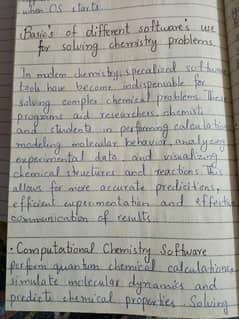 when OS starts.
Basics of different software's use
for solving chemistry problems
In modern chemistry, specialized software
tools have become indispensable for
solving complex chemical problems. These
programs aid researchers, chemists
and students in performing calculations
modeling molecular behavior, analyzing
experimental data and visualizing
chemical structures and reactions. This
allows for more accurate predictions,
efficient experimentation and effective
communication of results.
• Computational Chemistry Software
perform quantum chemical calculations,
simulate molecular dynamics and
predict chemical properties. Solving